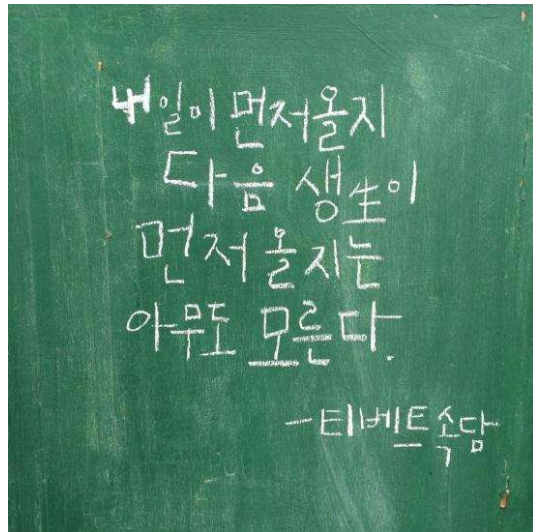 내일이 먼저올지
다음 생生이
먼저 올지는
아무도 모른다.
-티벤트속담